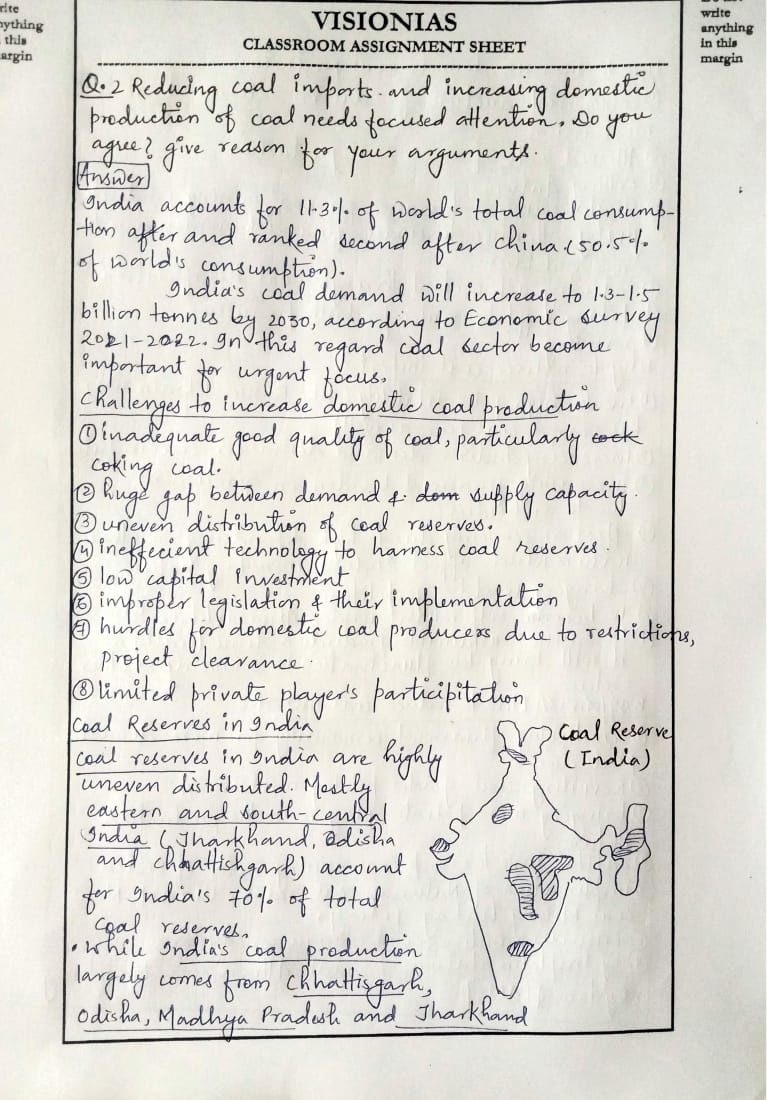 rite
nything
this
argin
VISIONIAS
CLASSROOM ASSIGNMENT SHEET
write
anything
in this
margin
Q.2 Reducing coal imports and increasing domestic
production of coal needs focused attention. Do you
agree? give reason for your arguments.
Answer
India accounts for 11.3% of world's total coal consump-
tion after and ranked second after china (50.5%
of world's consumption).
India's coal demand will increase to 1.3-1.5
billion tonnes by 2030, according to Economic survey
2021-2022. In this regard coal sector become
important for urgent focus.
Challenges to increase domestic coal production
① inadequate good quality of coal, particularly cock
coking coal.
② huge gap between demand & dom supply capacity.
③ uneven distribution of coal reserves.
④ ineffecient technology to harness coal reserves.
⑤ low capital investment
⑥ improper legislation & their implementation
⑦ hurdles for domestic coal producers due to restrictions,
project clearance.
⑧ limited private player's participitation
Coal Reserves in India
Coal Reserve
(India)
coal reserves in India are highly
uneven distributed. Mostly
eastern and south-central
India (Jharkhand, Odisha
and chhattishgarh) account
for India's 70% of total
coal reserves.
• While India's coal production
largely comes from chhattisgarh,
Odisha, Madhya Pradesh and Jharkhand